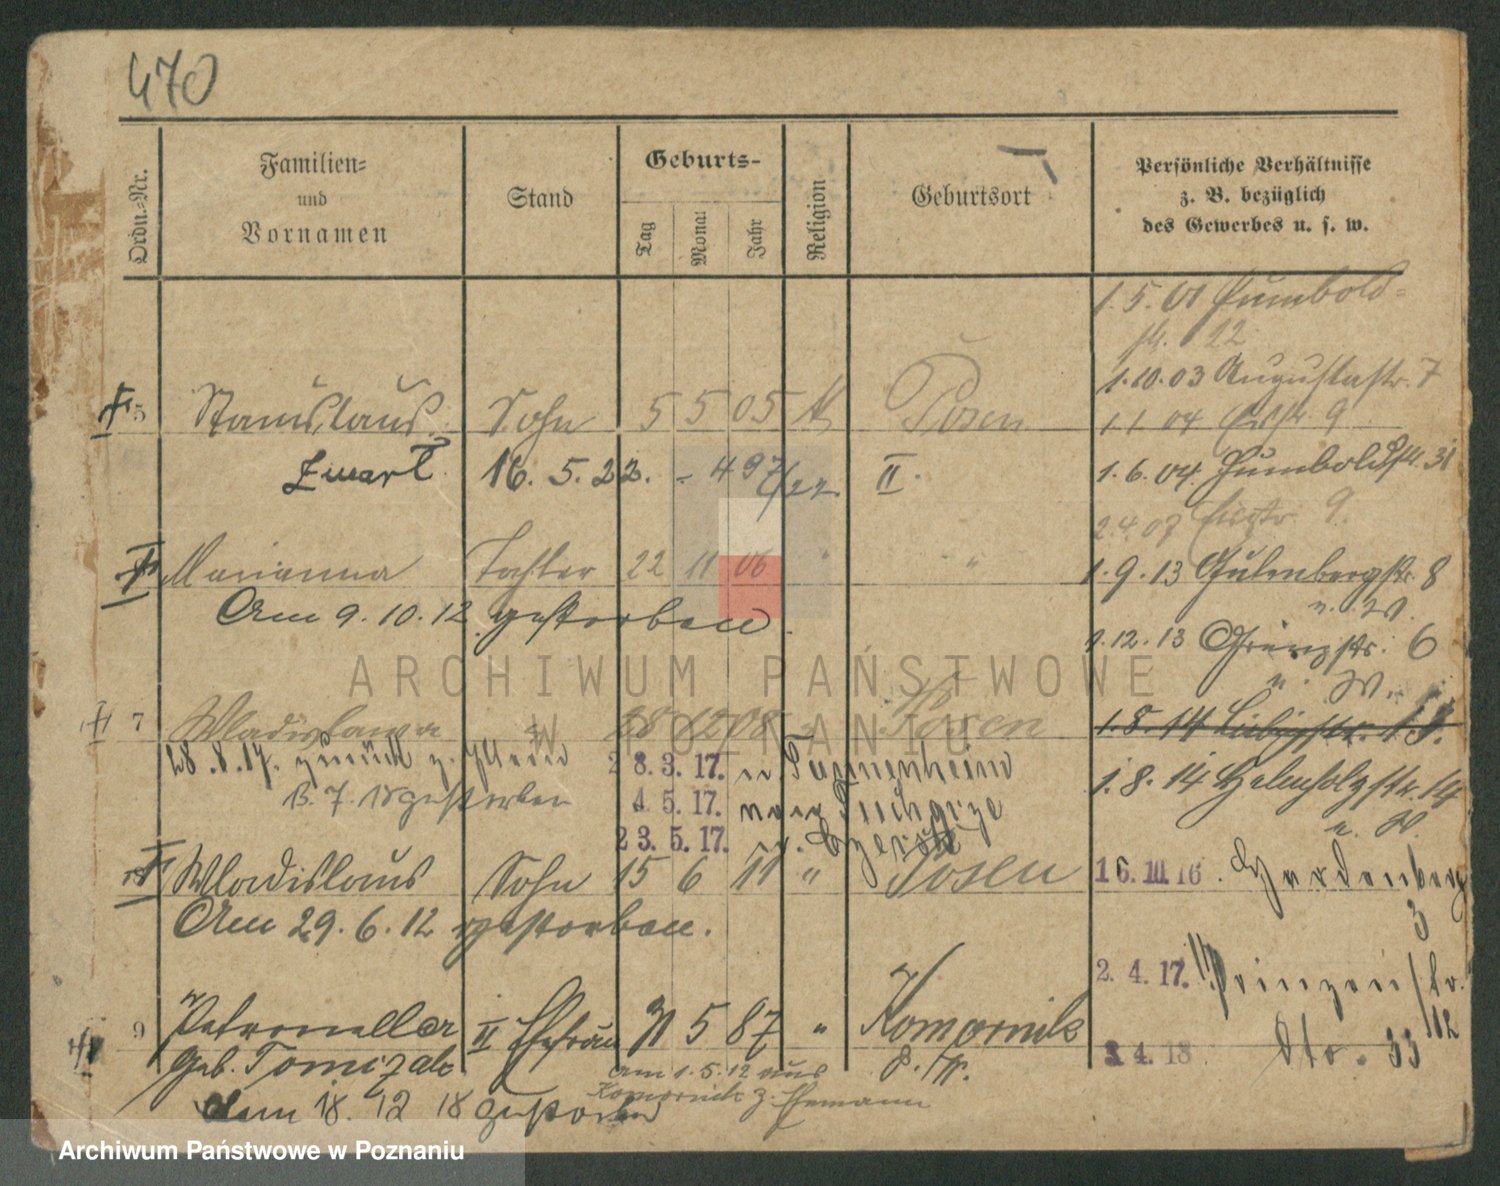 470
Ordn.-Nr.
Familien-
und
Vornamen
Stand
Geburts-
Tag
Monat
Jahr
Religion
Geburtsort
Persönliche Verhältnisse
z. B. bezüglich
des Gewerbes u. s. w.
1.5.01 Humbold-
str. 22
1.10.03 Augustastr. 7
5 Stanislaus Sohn 5 5 05 K Posen
1.1.04 9
zmarł 16. 5. 22. - 497/22 II.
1.6.04. Humboldstr. 31
2.4.07 9.
Marianna Tochter 22 11 06 " "
1.9.13 Gutenbergstr. 8
u. W.
Am 9.10.12 gestorben.
1.12.13 Grenzstr. 6
u. W.
ARCHIWUM PAŃSTWOWE
W POZNANIU
7 Wladislawa 28 12 08 " Posen
1.8.14
28.8.17. zurück z.
28.3.17. n. Tannenheim
1.8.14 str. 14
u. W.
13.7.18 gestorben
4.5.17. nach
23.5.17. n. Czersk
Wladislaus Sohn 15 6 11 " Posen
16.10.16.
3
Am 29.6.12 gestorben.
2.4.17. Prinzenstr.
12
9 Petronella II Ehefrau 31 5 87 " Komornik
geb. Tomizak
P. W.
3.4.18 dto. 33
am 1.5.12 aus
Komornik z. Ehemann
Am 18.12 18 gestorben
Archiwum Państwowe w Poznaniu